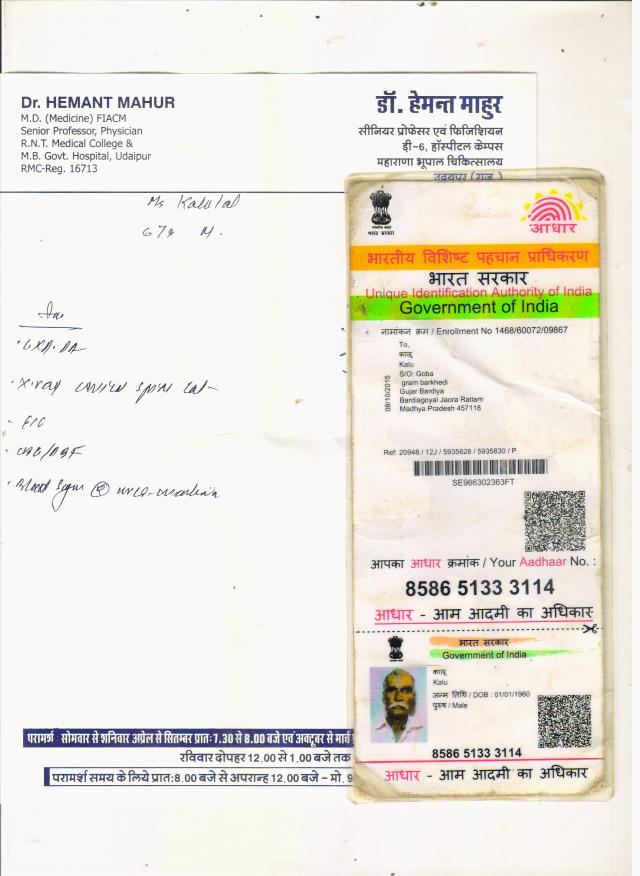 Dr. HEMANT MAHUR
M.D. (Medicine) FIACM
Senior Professor, Physician
R.N.T. Medical College &
M.B. Govt. Hospital, Udaipur
RMC-Reg. 16713
डॉ. हेमन्त माहुर
सीनियर प्रोफेसर एवं फिजिशियन
डी-6, हॉस्पीटल केम्पस
महाराणा भूपाल चिकित्सालय
उदयपुर (राज.)
Kalulal
67y M.
X-ray
Blood Sugar
परामर्श सोमवार से शनिवार अप्रेल से सितम्बर प्रातः 7.30 से 8.00 बजे एवं अक्टूबर से मार्च
रविवार दोपहर 12.00 से 1.00 बजे तक
परामर्श समय के लिये प्रातः 8.00 बजे से अपरान्ह 12.00 बजे - मो. 9
भारत सरकार
आधार
भारतीय विशिष्ट पहचान प्राधिकरण
भारत सरकार
Unique Identification Authority of India
Government of India
नामांकन क्रम / Enrollment No 1468/60072/09867
To,
कालू
Kalu
S/O: Goba
gram barkhedi
Gujar Bardiya
Bardiagoyal Jaora Ratlam
Madhya Pradesh 457118
08/10/2015
Ref: 20948 / 12J / 5935628 / 5935830 / P
SE966302363FT
आपका आधार क्रमांक / Your Aadhaar No. :
8586 5133 3114
आधार - आम आदमी का अधिकार
भारत सरकार
Government of India
कालू
Kalu
जन्म तिथि / DOB : 01/01/1960
पुरुष / Male
8586 5133 3114
आधार - आम आदमी का अधिकार